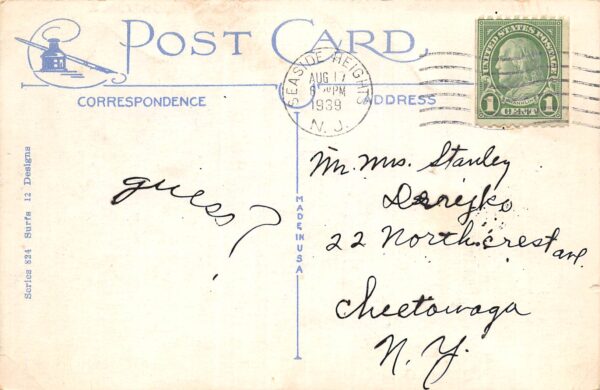 POST CARD
CORRESPONDENCE
ADDRESS
SEASIDE HEIGHTS
AUG 17
PM
1939
N. J.
UNITED STATES POSTAGE
FRANKLIN
1 CENT 1
Series 824 Surfs 12 Designs
MADE IN USA
guess?
Mr. Mrs. Stanley
22 North crest ave.
Cheetowaga
N. Y.